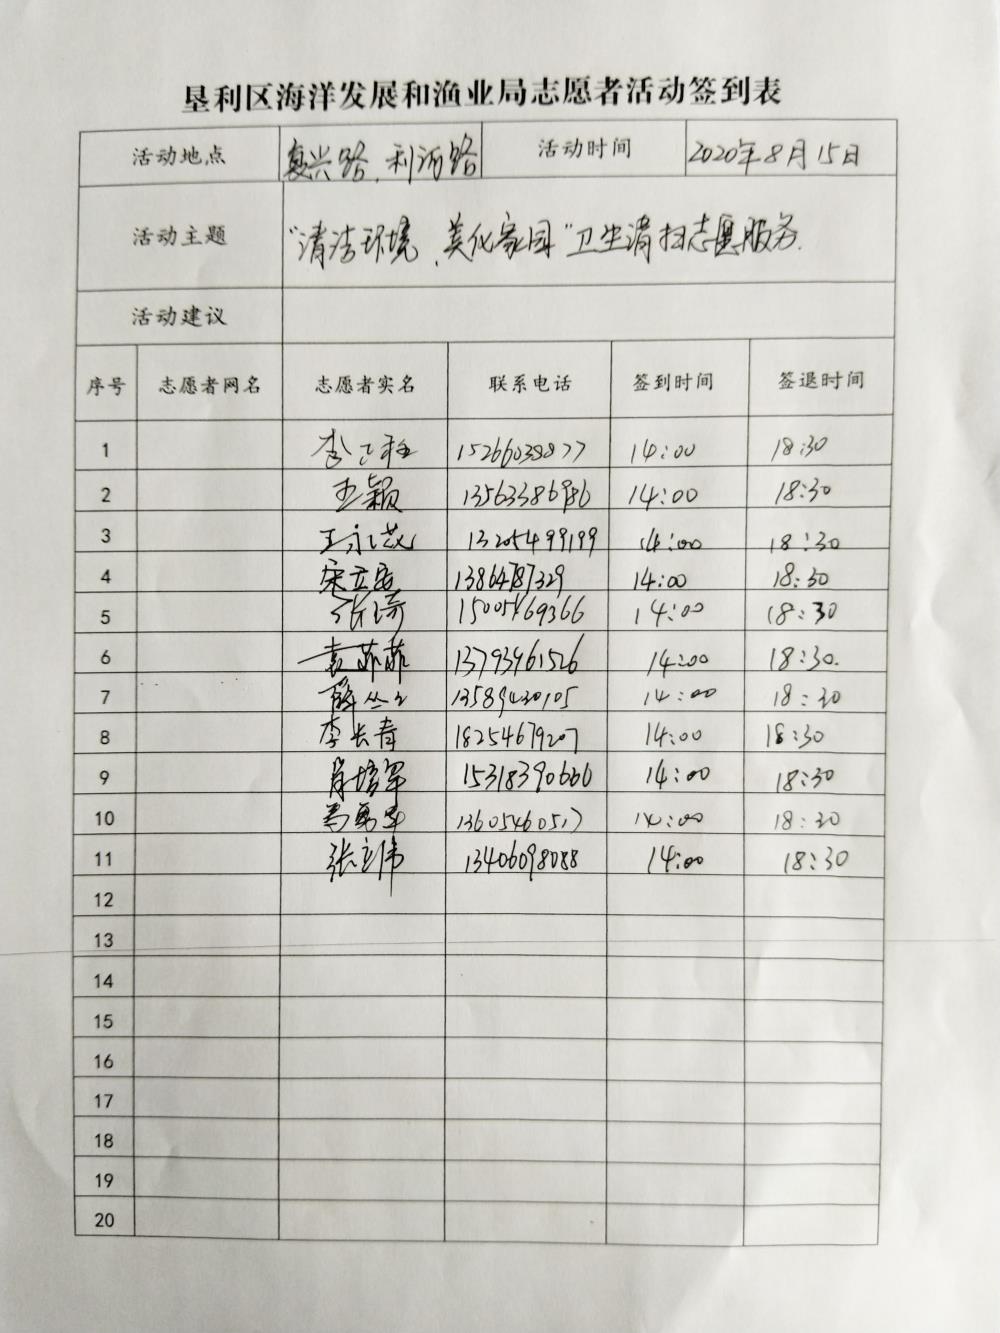 垦利区海洋发展和渔业局志愿者活动签到表
活动地点 复兴路、利河路 活动时间 2020年8月15日
活动主题 “清洁环境、美化家园”卫生清扫志愿服务.
活动建议
序号 志愿者网名 志愿者实名 联系电话 签到时间 签退时间
1 15266038877 14:00 18:30
2 王颖 13563386986 14:00 18:30
3 王永 13205499199 14:00 18:30
4 宋立 13864787329 14:00 18:30
5 张琦 15005469366 14:00 18:30
6 袁菲菲 13793961526 14:00 18:30.
7 薛丛 13589430105 14:00 18:30
8 李长青 18254679207 14:00 18:30
9 肖培军 15318390666 14:00 18:30
10 13605460517 14:00 18:30
11 张立伟 13406098088 14:00 18:30
12
13
14
15
16
17
18
19
20